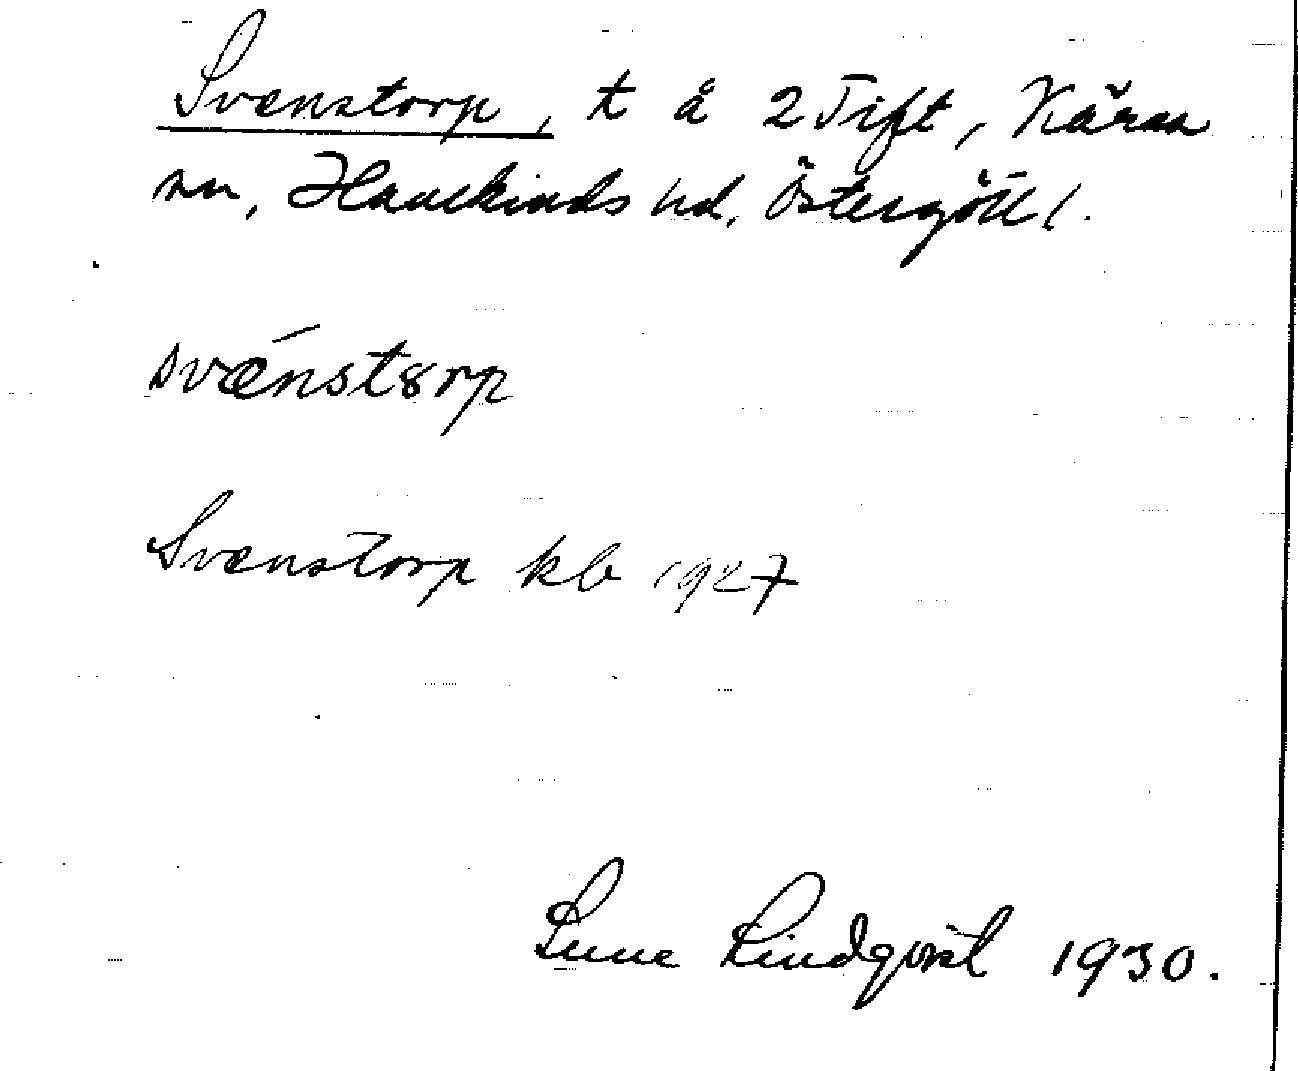 Svenstorp, t å 2 Tift, Kärna
sn, Hanekinds hd, Östergötl.
svǽnstɞrp
Svenstorp kb 1927
Sune Lindqvist 1930.